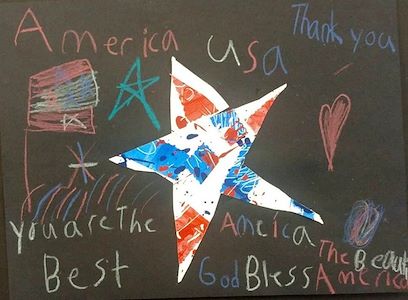 America USA Thank you
You are The Best
Ameica The Beaut
God Bless America